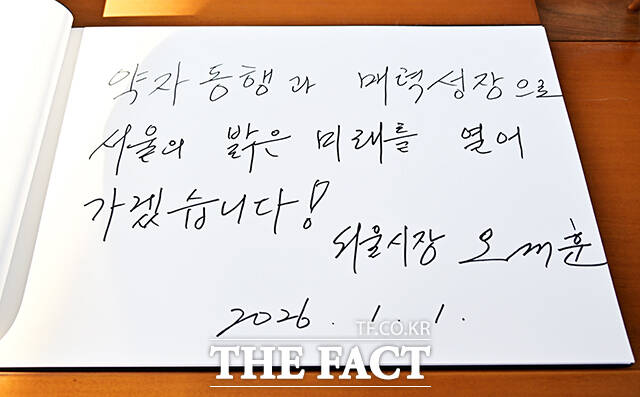 약자동행과 매력성장으로
서울의 밝은 미래를 열어
가겠습니다!
서울시장 오세훈
2026. 1. 1.
TF.CO.KR
THE FACT